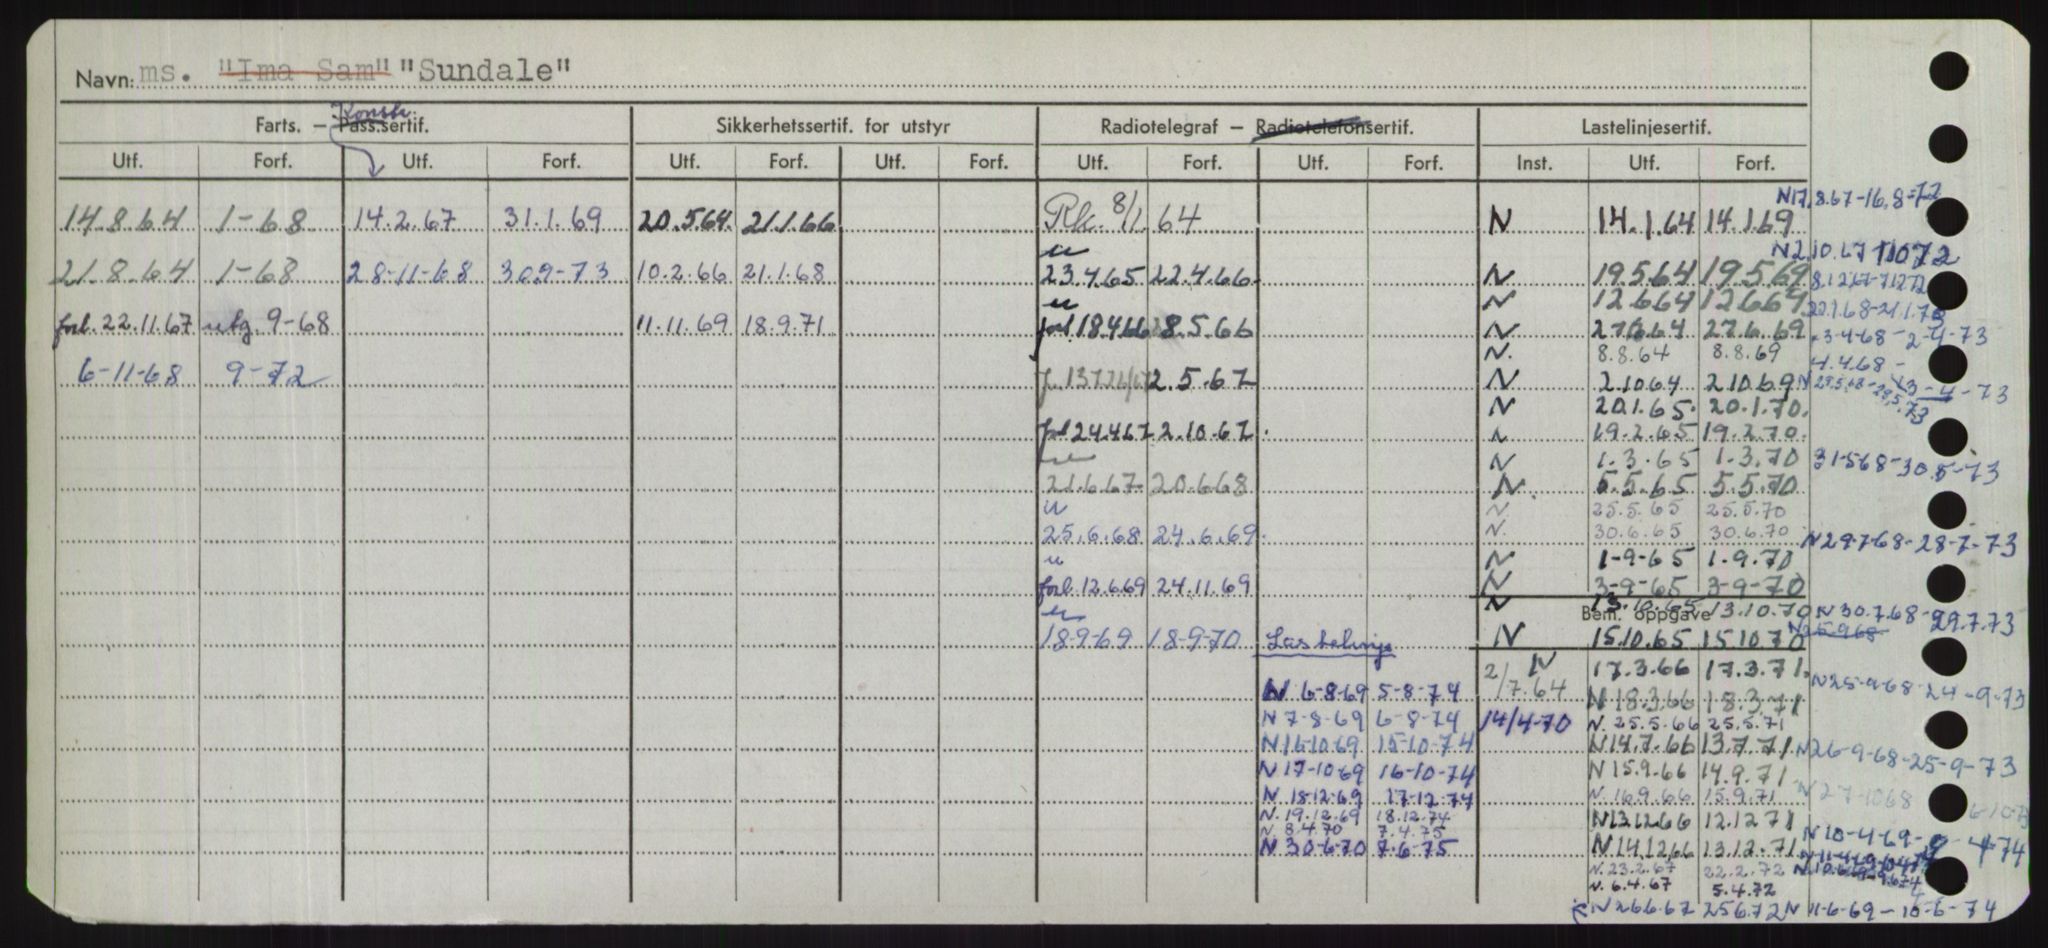 Navn: ms. "Ima Sam" "Sundale"
Konstr.
Farts. – Pass.sertif. Sikkerhetssertif. for utstyr Radiotelegraf – Radiotelefonsertif. Lastelinjesertif.
Utf. Forf. Utf. Forf. Utf. Forf. Utf. Forf. Utf. Forf. Utf. Forf. Inst. Utf. Forf.
N17.8.67-16.8-72
14.8.64 1-68 14.2.67 31.1.69 20.5.64. 21.1.66 Rk. 8/1 64 N 14.1.64 14.1.69
N2.10.67 1.10.72
21.8.64 1-68 28-11-68 30.9-73 10.2.66 21.1.68 23.4.65 22.4.66 N 19.5.64 19.5.69 8.12.67-7.12.72
N 12.6.64 12.6.69 22.1.68-21.1.73
forl. 22.11.67 utg. 9-68 11.11.69 18.9.71 forl. 18.4.66 28.5.66 N 27.6.64 27.6.69 3-4-68-2-4-73
N. 8.8.64 8.8.69 4.4.68 -
6-11-68 9-72 2.5.67 N 2.10.64 2.10.69 N 29.5.68-28.5.73 3-4-73
N 20.1.65. 20.1.70.
forl 24.4.67 2.10.67. 19.2.65 19.2.70.
N 1.3.65 1.3.70 31-5-68-30.5-73
21.6.67 20.6.68 N. 5.5.65 5.5.70
N. 25.5.65 25.5.70
25.6.68 24.6.69. N. 30.6.65 30.6.70 N29-7-68-28-7-73
N 1-9-65 1.9.70
forl. 12.6.69 24.11.69 N 3-9-65 3-9-70
N Bem. oppgave 13.10.65 13.10.70 N 30.7.68-29.7.73
18-9-69 18-9-70 Lastelinje N 15.10.65 15.10.70 N25-9-68
2/7.64 N 17.3.66 17.3.71.
N 6-8-69 5-8-74 N 18.3.66 18.3.71 N25-9-68-24-9-73
N 7-8-69 6-8-74 14/4-70 N. 25.5.66 25.5.71
N16-10.69 15-10-74 N14.7.66 13.7.71 N26-9-68-25-9-73
N 17-10-69 16-10-74 N15.9.66 14.9.71
N 18-12-69 17-12-74 N. 16.9.66 15.9.71 N 27-10 68
N. 19.12.69 18.12.74 N13.12.66 12.12.71
N. 8.4.70 7.4.75 N 10-4-69-9-4-74
N 30-6-70 7-6-75 N14.12.66 13.12.71
N. 23.2.67 22.2.72
N. 6.4.67 5.4.72
N 26.6.67 25.6.72 N 11-6-69-10-6-74